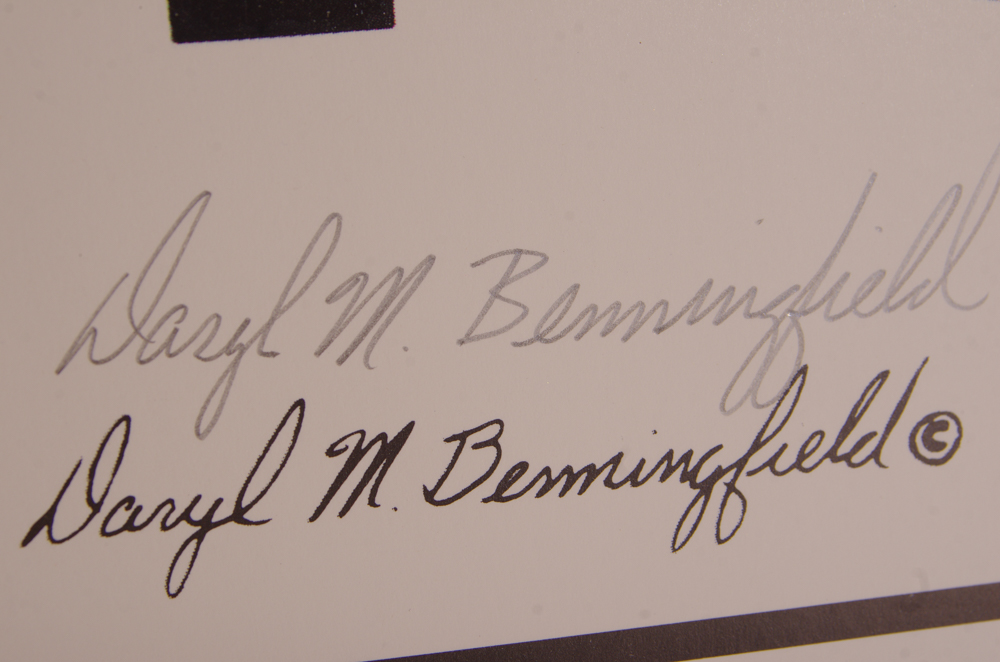 Daryl M. Benningfield
Daryl M. Benningfield ©